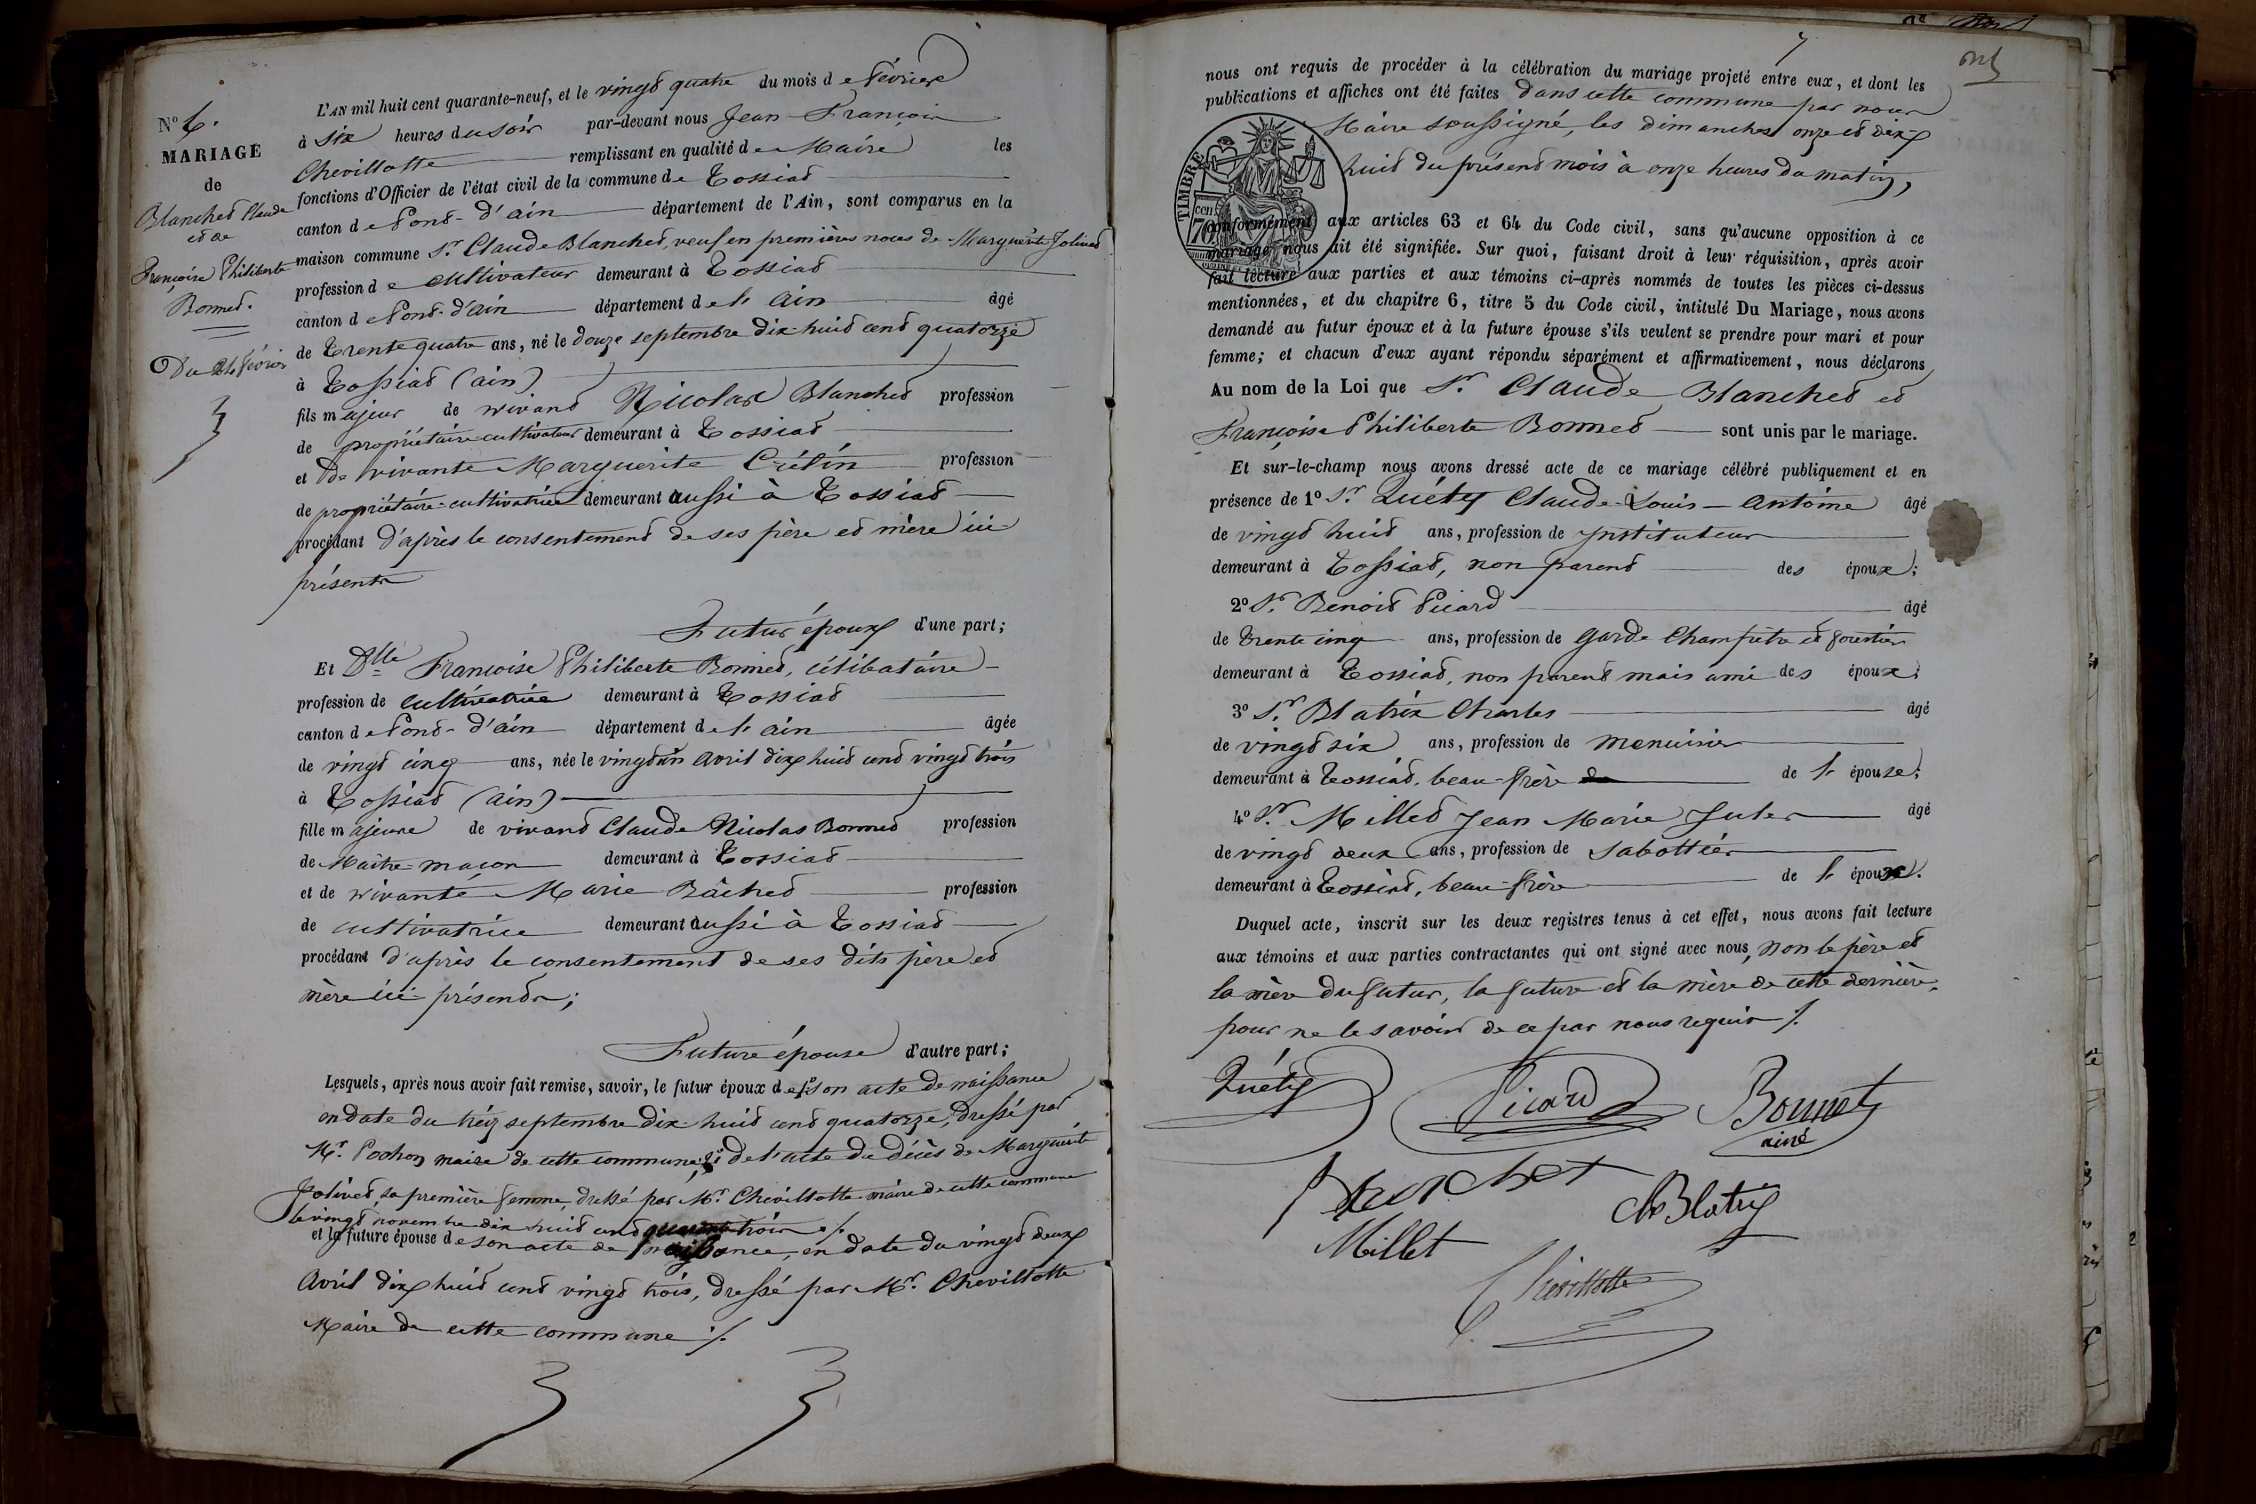 N° 6.
MARIAGE
de
Blanchet Claude
et de
Françoise Philiberte
Bonnet.
Du 24 février
L'AN mil huit cent quarante-neuf, et le vingt quatre du mois de février
à six heures du soir par-devant nous Jean-François
Chevillotte remplissant en qualité de Maire les
fonctions d'Officier de l'état civil de la commune de Tossiat
canton de Pont-d'ain département de l'Ain, sont comparus en la
maison commune Sr. Claude Blanchet, veuf en premières noces de Marguerite Jolivet
profession de cultivateur demeurant à Tossiat
canton de Pont-d'ain département de l'ain âgé
de trente quatre ans, né le douze septembre dix-huit cent quatorze
à Tossiat (ain)
fils majeur de vivant Nicolas Blanchet profession
de propriétaire-cultivateur demeurant à Tossiat
et de vivante Marguerite Crétin profession
de propriétaire-cultivatrice demeurant aussi à Tossiat
procédant d'après le consentement de ses père et mère ici
présents
Futur époux d'une part;
Et Dlle Françoise Philiberte Bonnet, célibataire
profession de cultivatrice demeurant à Tossiat
canton de Pont-d'ain département de l'ain âgée
de vingt cinq ans, née le vingt un avril dix huit cent vingt trois
à Tossiat (ain)
fille majeure de vivant Claude Nicolas Bonnet profession
de Maître-maçon demeurant à Tossiat
et de vivante Marie Bâchet profession
de cultivatrice demeurant aussi à Tossiat
procédant d'après le consentement de ses dits père et
mère ici présents;
Future épouse d'autre part;
Lesquels, après nous avoir fait remise, savoir, le futur époux de 1° son acte de naissance
en date du treize septembre dix-huit cent quatorze, dressé par
Mr. Pochon maire de cette commune; 2° de l'acte de décès de Marguerite
Jolivet, sa première femme, dressé par Mr. Chevillotte maire de cette commune
le vingt novembre dix huit cent quarante trois ./.
et la future épouse de son acte de naissance, en date du vingt deux
Avril dix huit cent vingt trois, dressé par Mr. Chevillotte
Maire de cette commune ./.
7
nous ont requis de procéder à la célébration du mariage projeté entre eux, et dont les
publications et affiches ont été faites dans cette commune par nous
Maire soussigné, les dimanches onze et dix-
huit du présent mois à onze heures du matin,
TIMBRE
cen.
70
conformément aux articles 63 et 64 du Code civil, sans qu'aucune opposition à ce
mariage nous ait été signifiée. Sur quoi, faisant droit à leur réquisition, après avoir
fait lecture aux parties et aux témoins ci-après nommés de toutes les pièces ci-dessus
mentionnées, et du chapitre 6, titre 5 du Code civil, intitulé Du Mariage, nous avons
demandé au futur époux et à la future épouse s'ils veulent se prendre pour mari et pour
femme; et chacun d'eux ayant répondu séparément et affirmativement, nous déclarons
Au nom de la Loi que Sr. Claude Blanchet et
Françoise Philiberte Bonnet sont unis par le mariage.
Et sur-le-champ nous avons dressé acte de ce mariage célébré publiquement et en
présence de 1° Sr. Quéty Claude-Louis-Antoine âgé
de vingt huit ans, profession de Instituteur
demeurant à Tossiat, non parent des époux;
2° Sr. Benoit Picard âgé
de trente cinq ans, profession de Garde Champêtre et forestier
demeurant à Tossiat, non parent mais ami des époux;
3° Sr. Blatrix Charles âgé
de vingt six ans, profession de menuisier
demeurant à Tossiat, beau-frère de l'épouse;
4° Sr. Millet Jean Marie Jules âgé
de vingt deux ans, profession de sabottier
demeurant à Tossiat, beau-frère de l'épouse.
Duquel acte, inscrit sur les deux registres tenus à cet effet, nous avons fait lecture
aux témoins et aux parties contractantes qui ont signé avec nous, non le père et
la mère du futur, la future et la mère de cette dernière,
pour ne le savoir de ce par nous requis ./.
Quéty Picard Bonnet
ainé
Blanchet
Ch Blatrix
Millet
Chevillotte